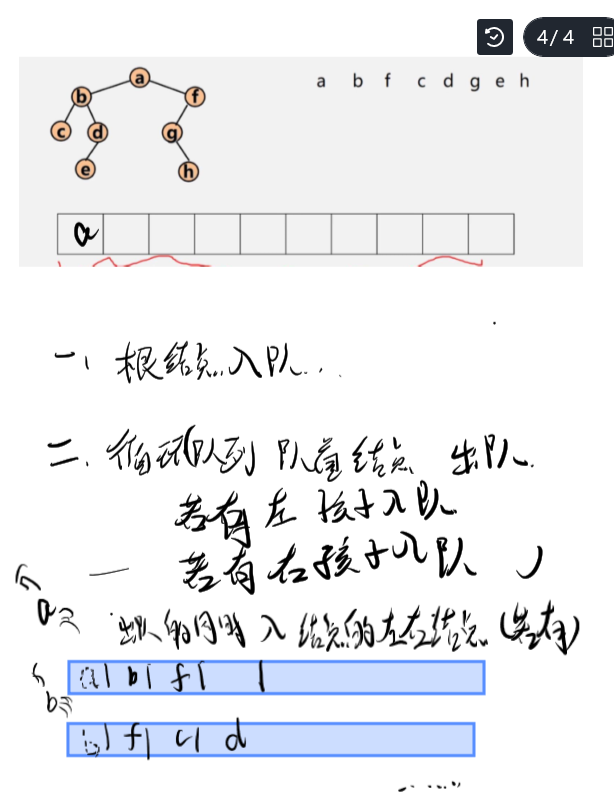 4/4
a b f c d g e h
a
b f
c d g
e h
a
一、根结点入队...
二、循环(队列 队首结点 出队.
若有左孩子入队
一 若有右孩子入队 )
"a" 出队的同时入结点的左右结点(若有)
a | b | f |
"b"
b | f | c | d
......